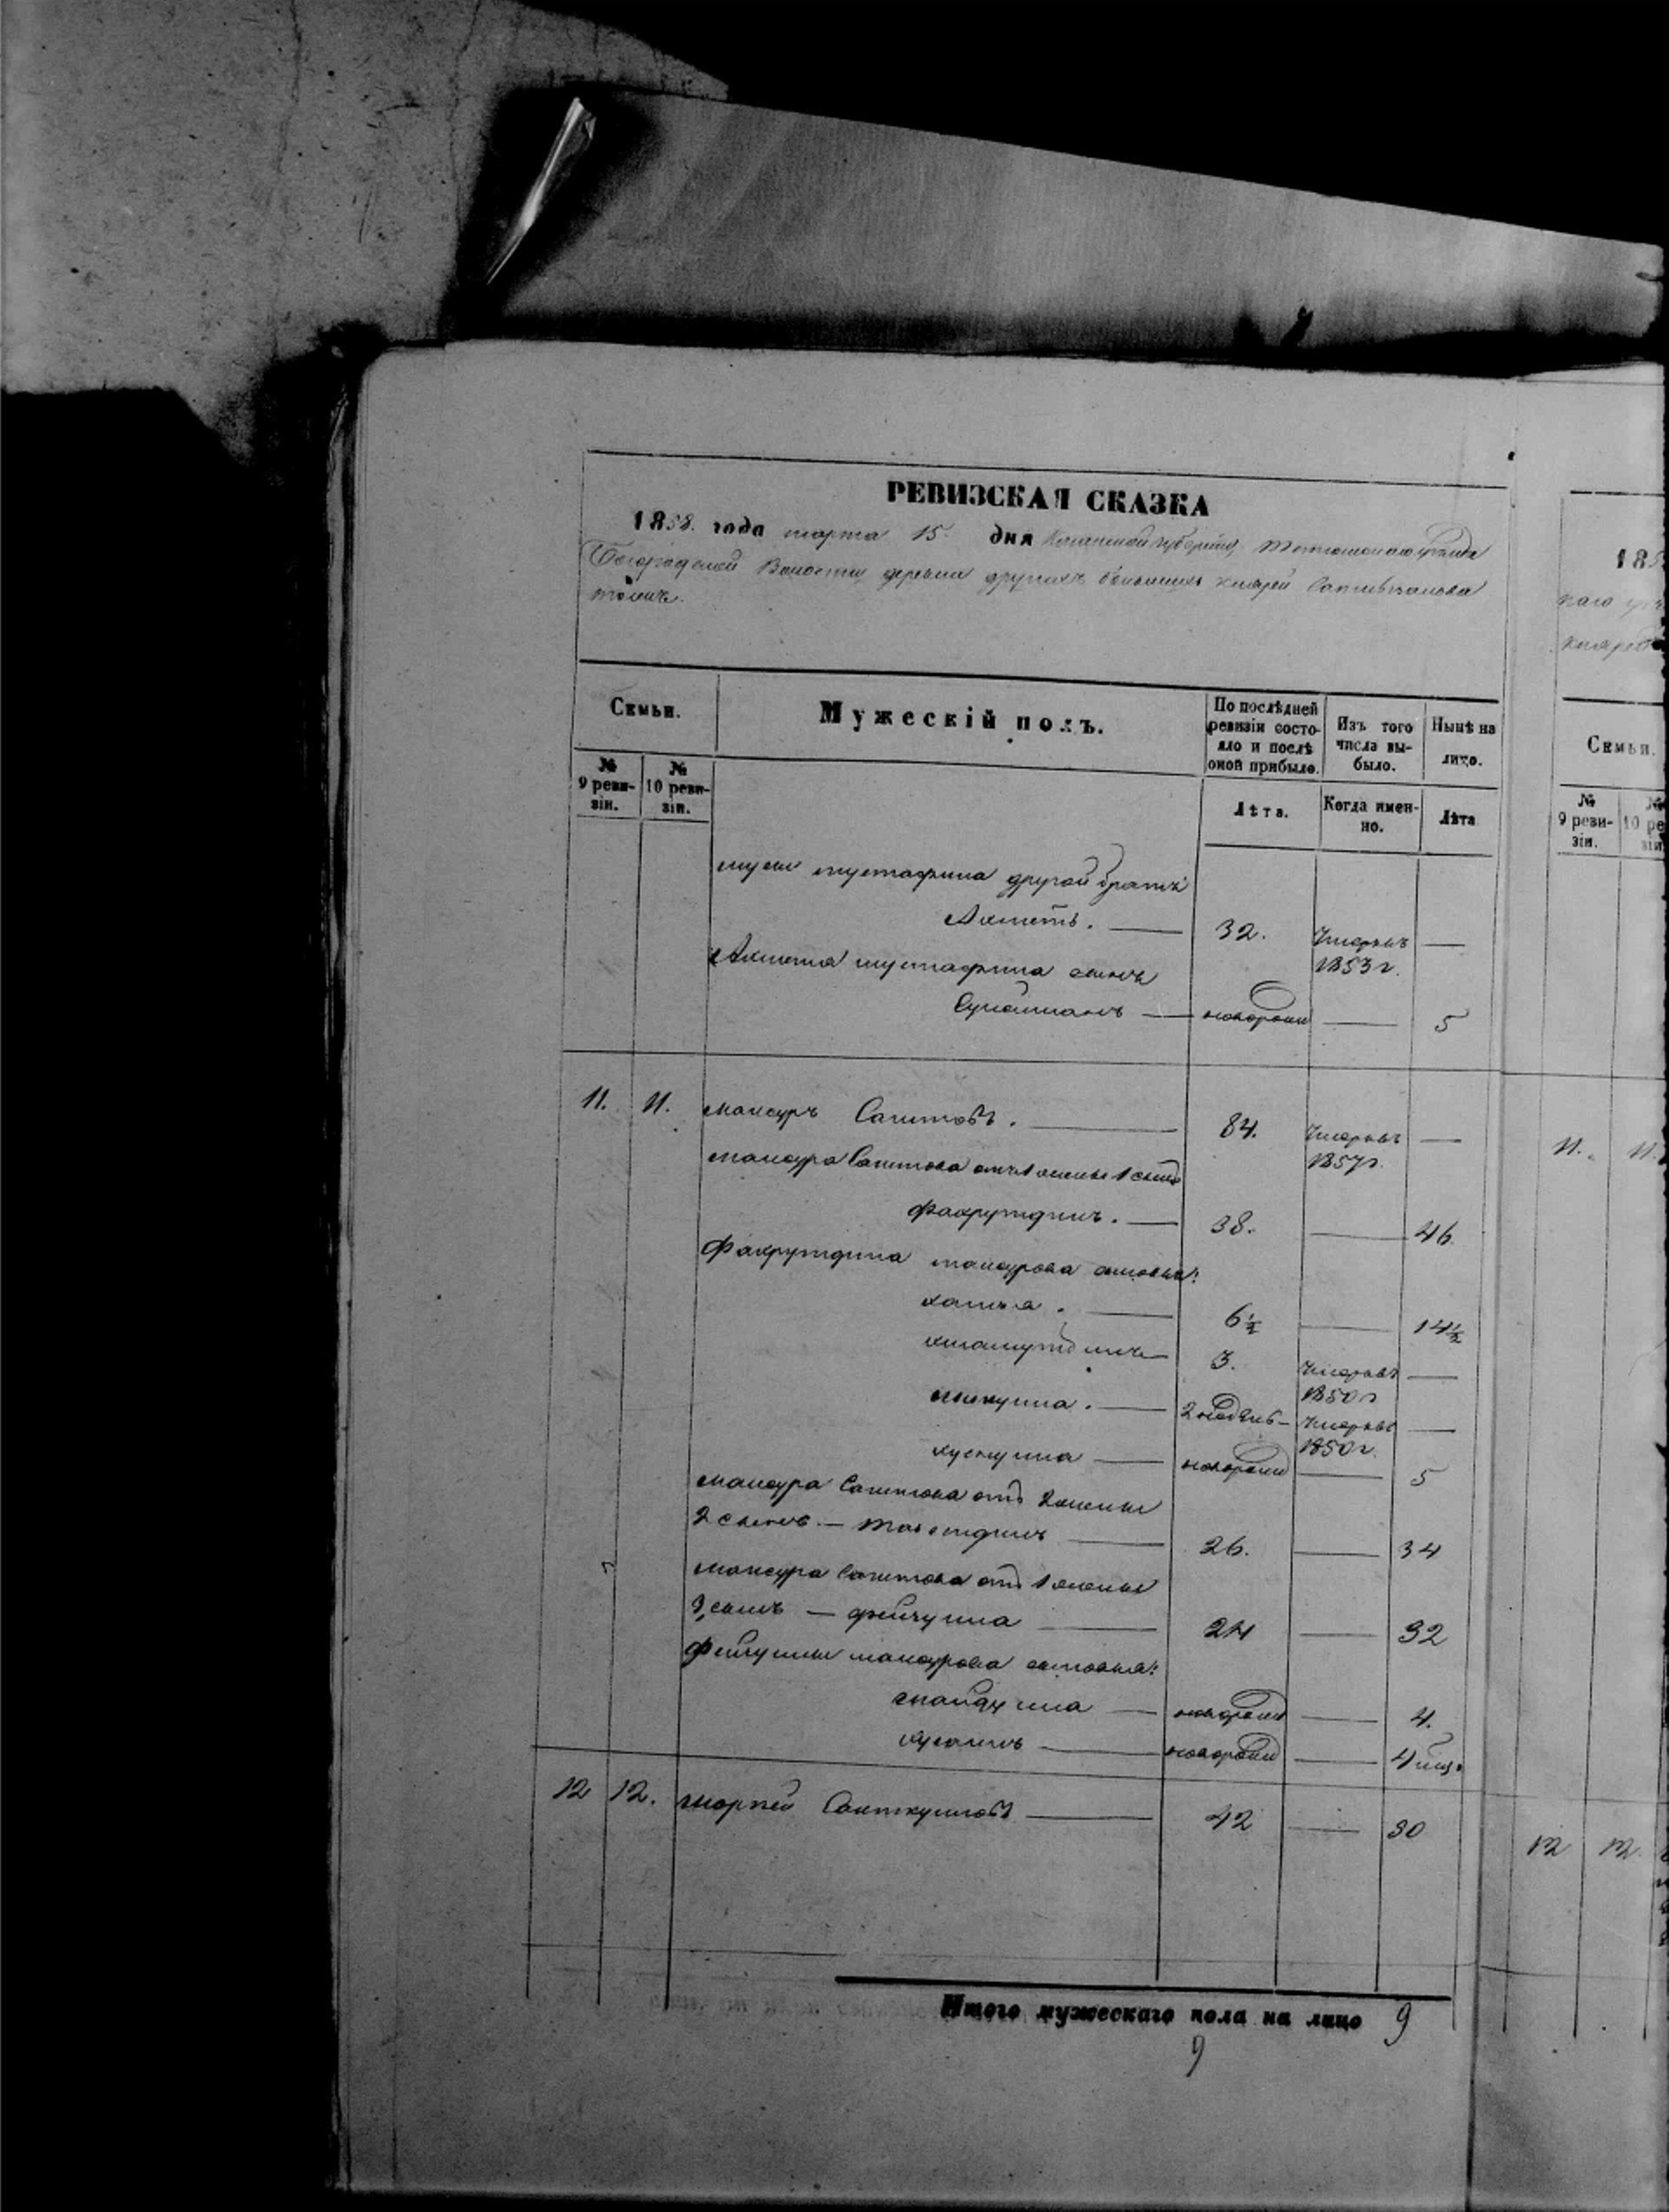 РЕВИЗСКАЯ СКАЗКА
1858. года марта 15 дня Казанской губернии, Тетюшскаго уѣзда
Волости деревни другихъ князей
тожъ.
Семьи.
Мужескій полъ.
По послѣдней ревизіи состояло и послѣ оной прибыло.
Изъ того числа выбыло.
Нынѣ на лицо.
№ 9 ревизіи.
№ 10 ревизіи.
Лѣта.
Когда именно.
Лѣта
мусы мустафина другой братъ
Ахметъ. — 32. Умеръ въ 1853 г. —
Ахметя мустафина сынъ
Сулейманъ — новорожд — 5
11. 11. Мансуръ Саитовъ. — 84. Умеръ въ 1857 г. —
Мансура Саитова отъ 1 жены 1 сынъ
Фахрутдинъ. — 38. — 46.
Фахрутдина мансурова сыновья:
— 6½ — 14½
— 3. Умеръ въ 1850 г —
— 2 недѣль — Умеръ въ 1850 г. —
— новорожд — 5
Мансура Саитова отъ 2 жены
2 сынъ — — 26. — 34
Мансура Саитова отъ 1 жены
3 сынъ — фейзулла — 24 — 32
Фейзуллы мансурова сыновья:
— новорожд — 4.
— новорожд — 4 мѣс.
12 12. — 42 — 50
Итого мужескаго пола на лицо 9
9
185
наго
князей
Семьи.
№ 9 ревизіи.
№ 10 ре
зіи
11. 11.
12 12.